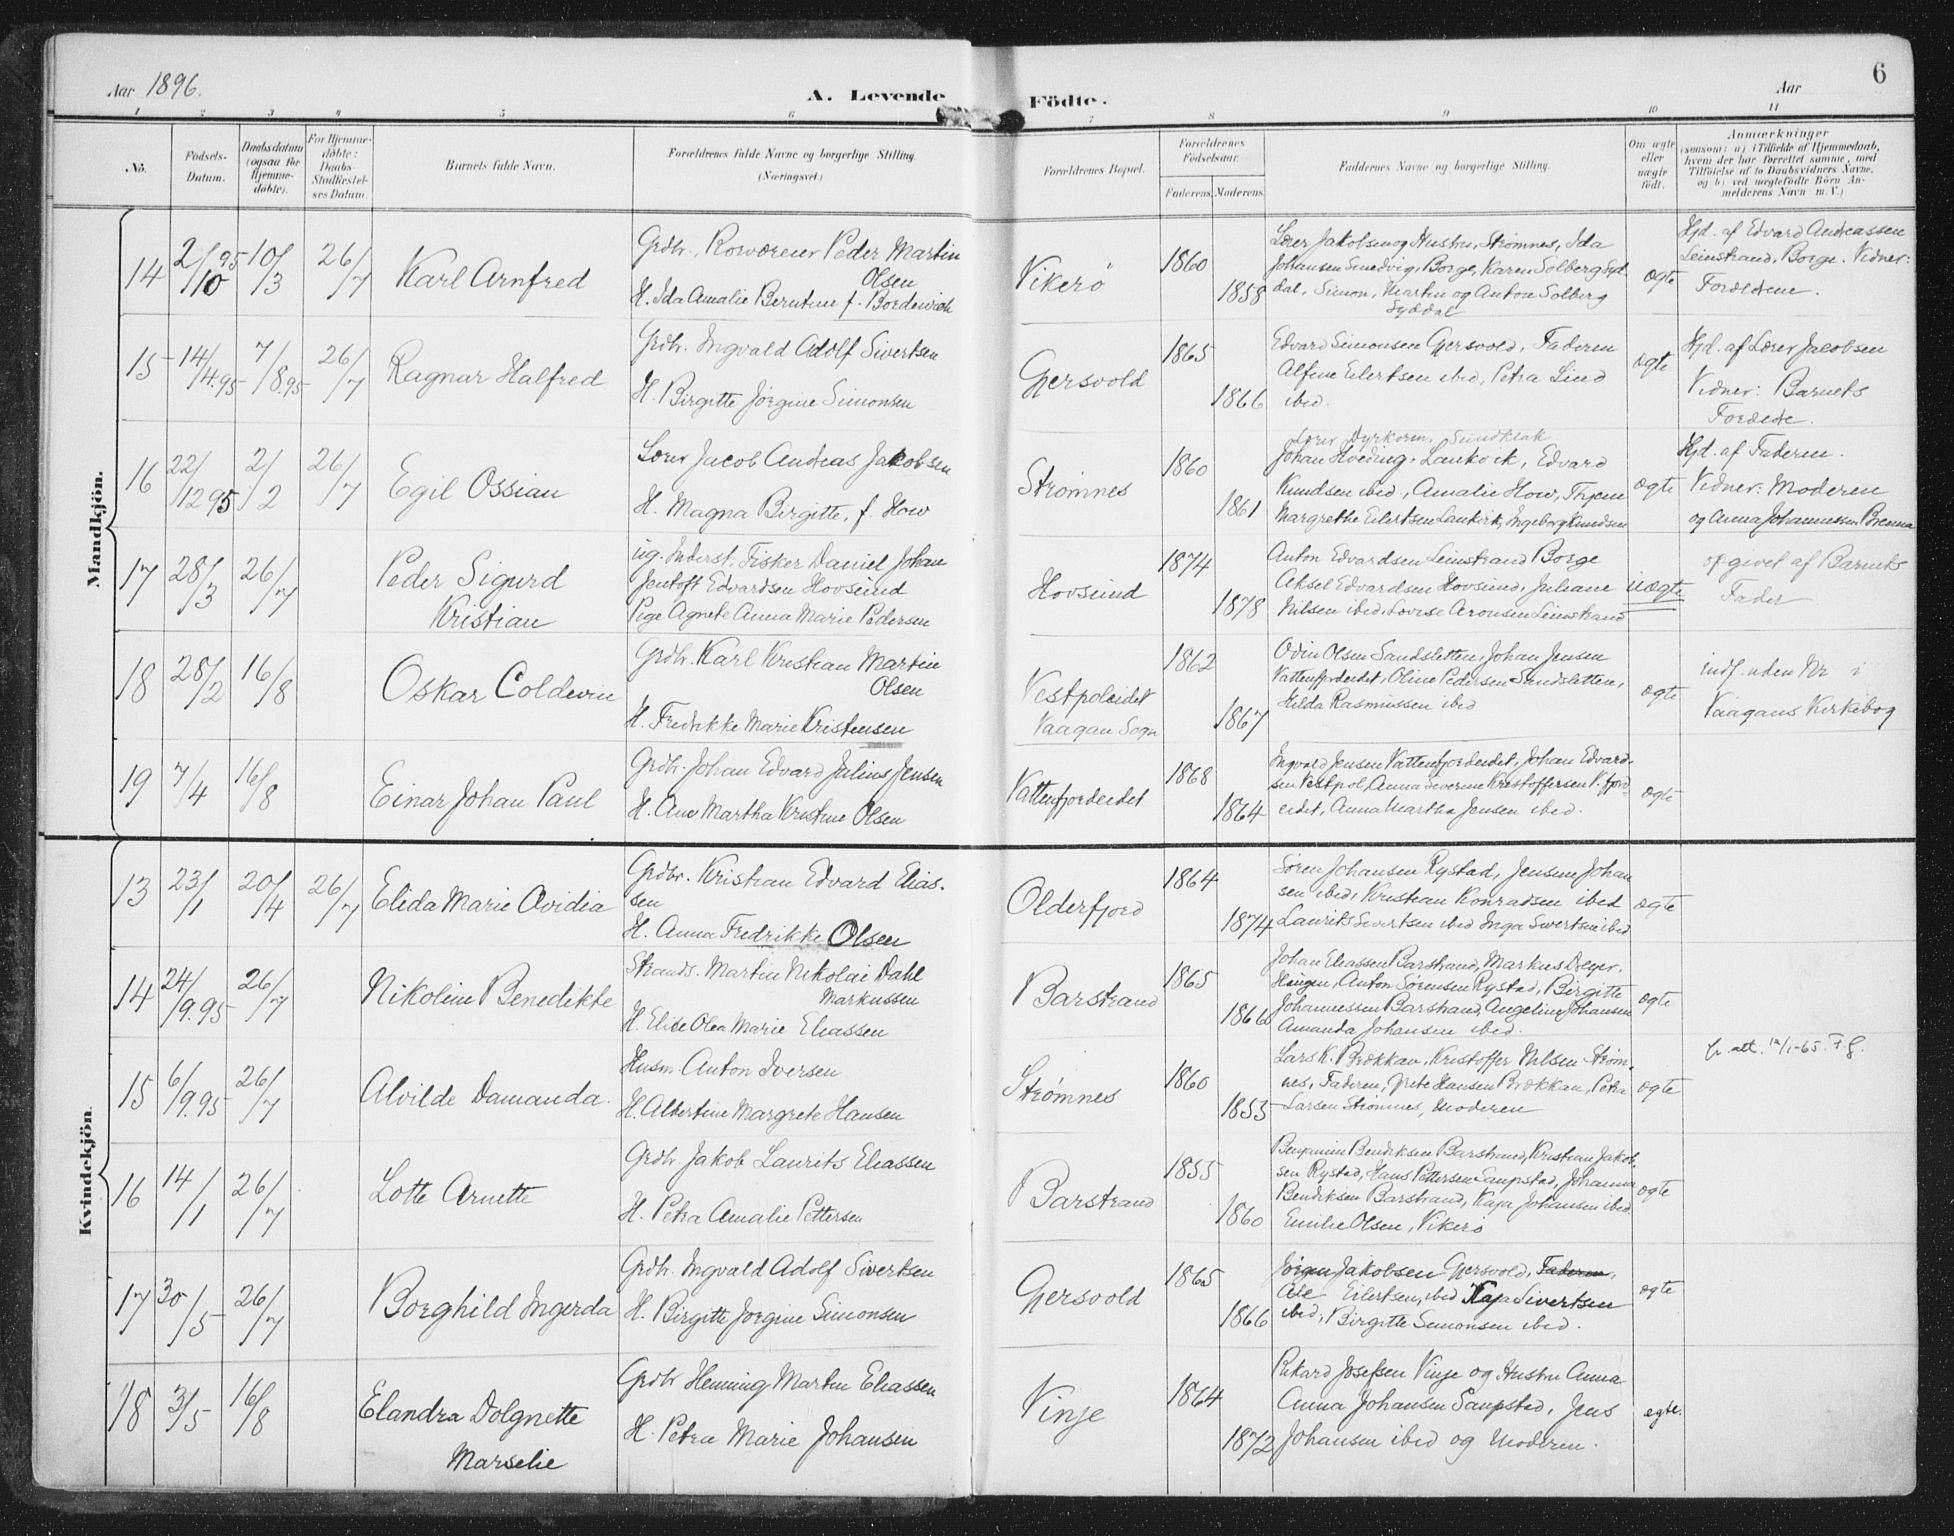 Aar 1896.
A. Levende
Födte.
Aar
6
1 2 3 4 5 6 7 8 9 10 11
No.
Fødsels-
Datum.
Daabsdatum
(ogsaa for
Hjemme-
døbte).
For Hjemme-
døbte:
Daabs-
Stadfæstel-
ses Datum
Barnets fulde Navn.
Forældrenes fulde Navne og borgerlige Stilling.
(Næringsvei.)
Forældrenes Bopæl.
Forældrenes
Fødselsaar.
Faderens. Moderens.
Faddernes Navne og borgerlige Stilling.
Om ægte
eller
uægte
født.
Anmærkninger
(saasom: a) i Tilfælde af Hjemmedaab,
hvem der har forrettet samme, med
Tilføielse af to Daabsvidners Navne,
og b) ved uægtefødte Børn An-
melderens Navn m. V.)
Mandkjön.
14 2/10 95 10/3 26/7
Karl Arnfred
Grdbr. Rorværer Peder Martin
Olsen
H. Ida Amalie Berntine f. Bordewich
Vikerø
1860
1858
Lærer Jakobsen og Hustru, Strømnes, Ida
Johansen Smedvig, Borge, Karen Solberg Syd
dal, Simon, Martin og Anton Solberg
Syddal
ægte
Hjd. af Edvard Andreassen
Leinstrand, Borge. Vidner:
Forældrene.
15 14/4.95 7/8.95 26/7
Ragnar Halfred
Grdbr. Ingvald Adolf Sivertsen
H. Birgitte Jørgine Simonsen
Gjersvold
1865
1866
Edvard Simonsen Gjersvold, Faderen
Alfine Eilertsen ibid, Petra Lind
ibid.
ægte
Hjd. af Lærer Jacobsen
Vidner: Barnets
Forældre.
16 22/12 95 2/2 26/7
Egil Ossian
Lærer Jacob Andreas Jakobsen
H. Magna Birgitte, f. How
Strømnes
1860
1861
Lærer Dyrkorn, Sundklak
Johan Hveding, Laukvik, Edvard
Knudsen ibid, Amalie How,
Margrethe Eilertsen Laukvik, Ingeborg Knudsen
ægte
Hjd. af Faderen.
Vidner: Moderen
og Anna Johannessen Brenna
17 28/3 26/7
Peder Sigurd
Kristian
ug. Inderst. Fisker Daniel Johan
Jentoft Edvardsen Hovsund
Pige Agnete Anna Marie Pedersen
Hovsund
1874
1878
Anton Edvardsen Leinstrand Borge
Aksel Edvardsen Hovsund, Juliane
Nilsen ibid, Lovise Aronsen Leinstrand
uægte
opgivet af Barnets
Fader
18 28/2 16/8
Oskar Coldevin
Grdbr. Karl Kristian Martin
Olsen
H. Fredrikke Marie Kristensen
Vestpoleidet
Vaagan Sogn
1862
1867
Odin Olsen Sandsletten, Johan Jensen
Vattenfjordeidet, Oline Pedersen Sandslettene,
Hilda Rasmussen ibid
ægte
indf. uden Nr i
Vaagans Kirkebog
19 7/4 16/8
Einar Johan Paul
Grdbr. Johan Edvard Julius Jensen
H. Ane Martha Kristine Olsen
Vattenfjordeidet
1868
1864
Ingvald Jensen Vattenfjordeidet, Johan Edvard-
sen Vestpol, Anna Severine Kristoffersen V. fjord-
eidet, Anna Martha Jensen ibid.
ægte
Kvindekjön.
13 23/1 20/4 26/7
Elida Marie Ovidia
Grdbr. Kristian Edvard Elias-
sen
H. Anna Fredrikke Olsen
Olderfjord
1864
1874
Søren Johansen Rystad, Jensine Johan
sen ibid, Kristian Konradsen ibid
Laurits Sivertsen ibid Inga Sivertsen ibid
ægte
14 24/9.95 26/7
Nikoline Benedikte
Strands. Martin Nikolai Dahl
Markussen
H. Elise Olea Marie Eliassen
Barstrand
1865
1866
Johan Eliassen Barstrand, Markus Dreyer,
Anton Sørensen Rystad, Birgitte
Johannessen Barstrand, Angeline Johansen
Amanda Johansen ibid.
ægte
15 6/9.95 26/7
Alvilde Damanda.
Husm. Anton Iversen
H. Albertine Margrete Hansen
Strømnes
1860
1855
Lars K. Brækkan, Kristoffer Nilsen Strøm-
nes, Faderen, Grete Hansen Brækkan, Petra
Larsen Strømnes, Moderen
ægte
fr. att. 12/1-65. F.g.
16 14/1 26/7
Lotte Arnette
Grdbr Jakob Laurits Eliassen
H. Petra Amalie Pettersen
Barstrand
1855
1860
Benjamin Bendiksen Barstrand, Kristian Jakob-
sen Rystad, Hans Pettersen Saupstad, Johanna
Bendiksen Barstrand, Kaja Johansen ibid
Emilie Olsen, Vikerø
ægte
17 30/5 26/7
Borghild Ingerda
Grdbr. Ingvald Adolf Sivertsen
H. Birgitte Jørgine Simonsen
Gjersvold
1865
1866
Jørgen Jakobsen Gjersvold, Faderen,
Eilertsen, ibid Kaja Sivertsen
ibid, Birgitte Simonsen ibid.
ægte
18 3/5 16/8
Elandra Dolgnette
Marselie
Grdbr Henning Martin Eliassen
H. Petra Marie Johansen
Vinje
1864
1872
Rikard Josefsen Vinje og Hustru Anna
Anna Johansen Saupstad, Jens
Johansen ibid og Moderen.
ægte.